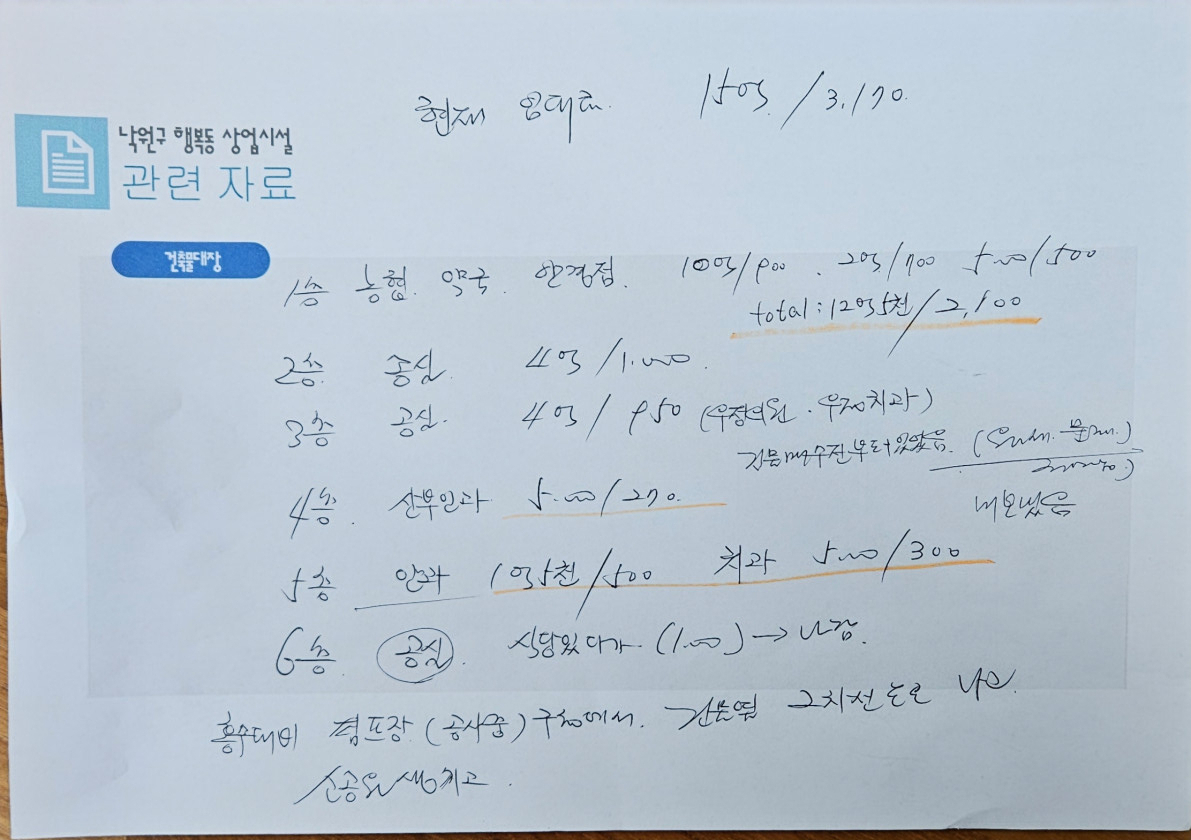 현재 임대료. 15억 / 3,170.
낙원구 행복동 상업시설
관련 자료
건축물대장
1층 농협. 약국. 안경점. 10억/900. 2억/700 5.00/500
total : 12억5천/2,100
2층. 공실. 4억/1.000.
3층 공실. 4억/950 (우정의원. 우정치과)
건물매수전부터있었음.
내보냈음
4층. 산부인과 5.00/270.
5층 안과 1억5천/500 치과 5.00/300
6층. 공실. 식당있다가. (1.00) → 나감.
홍수대비 펌프장. (공사중) 구청에서. 건물옆
소공원생기고.